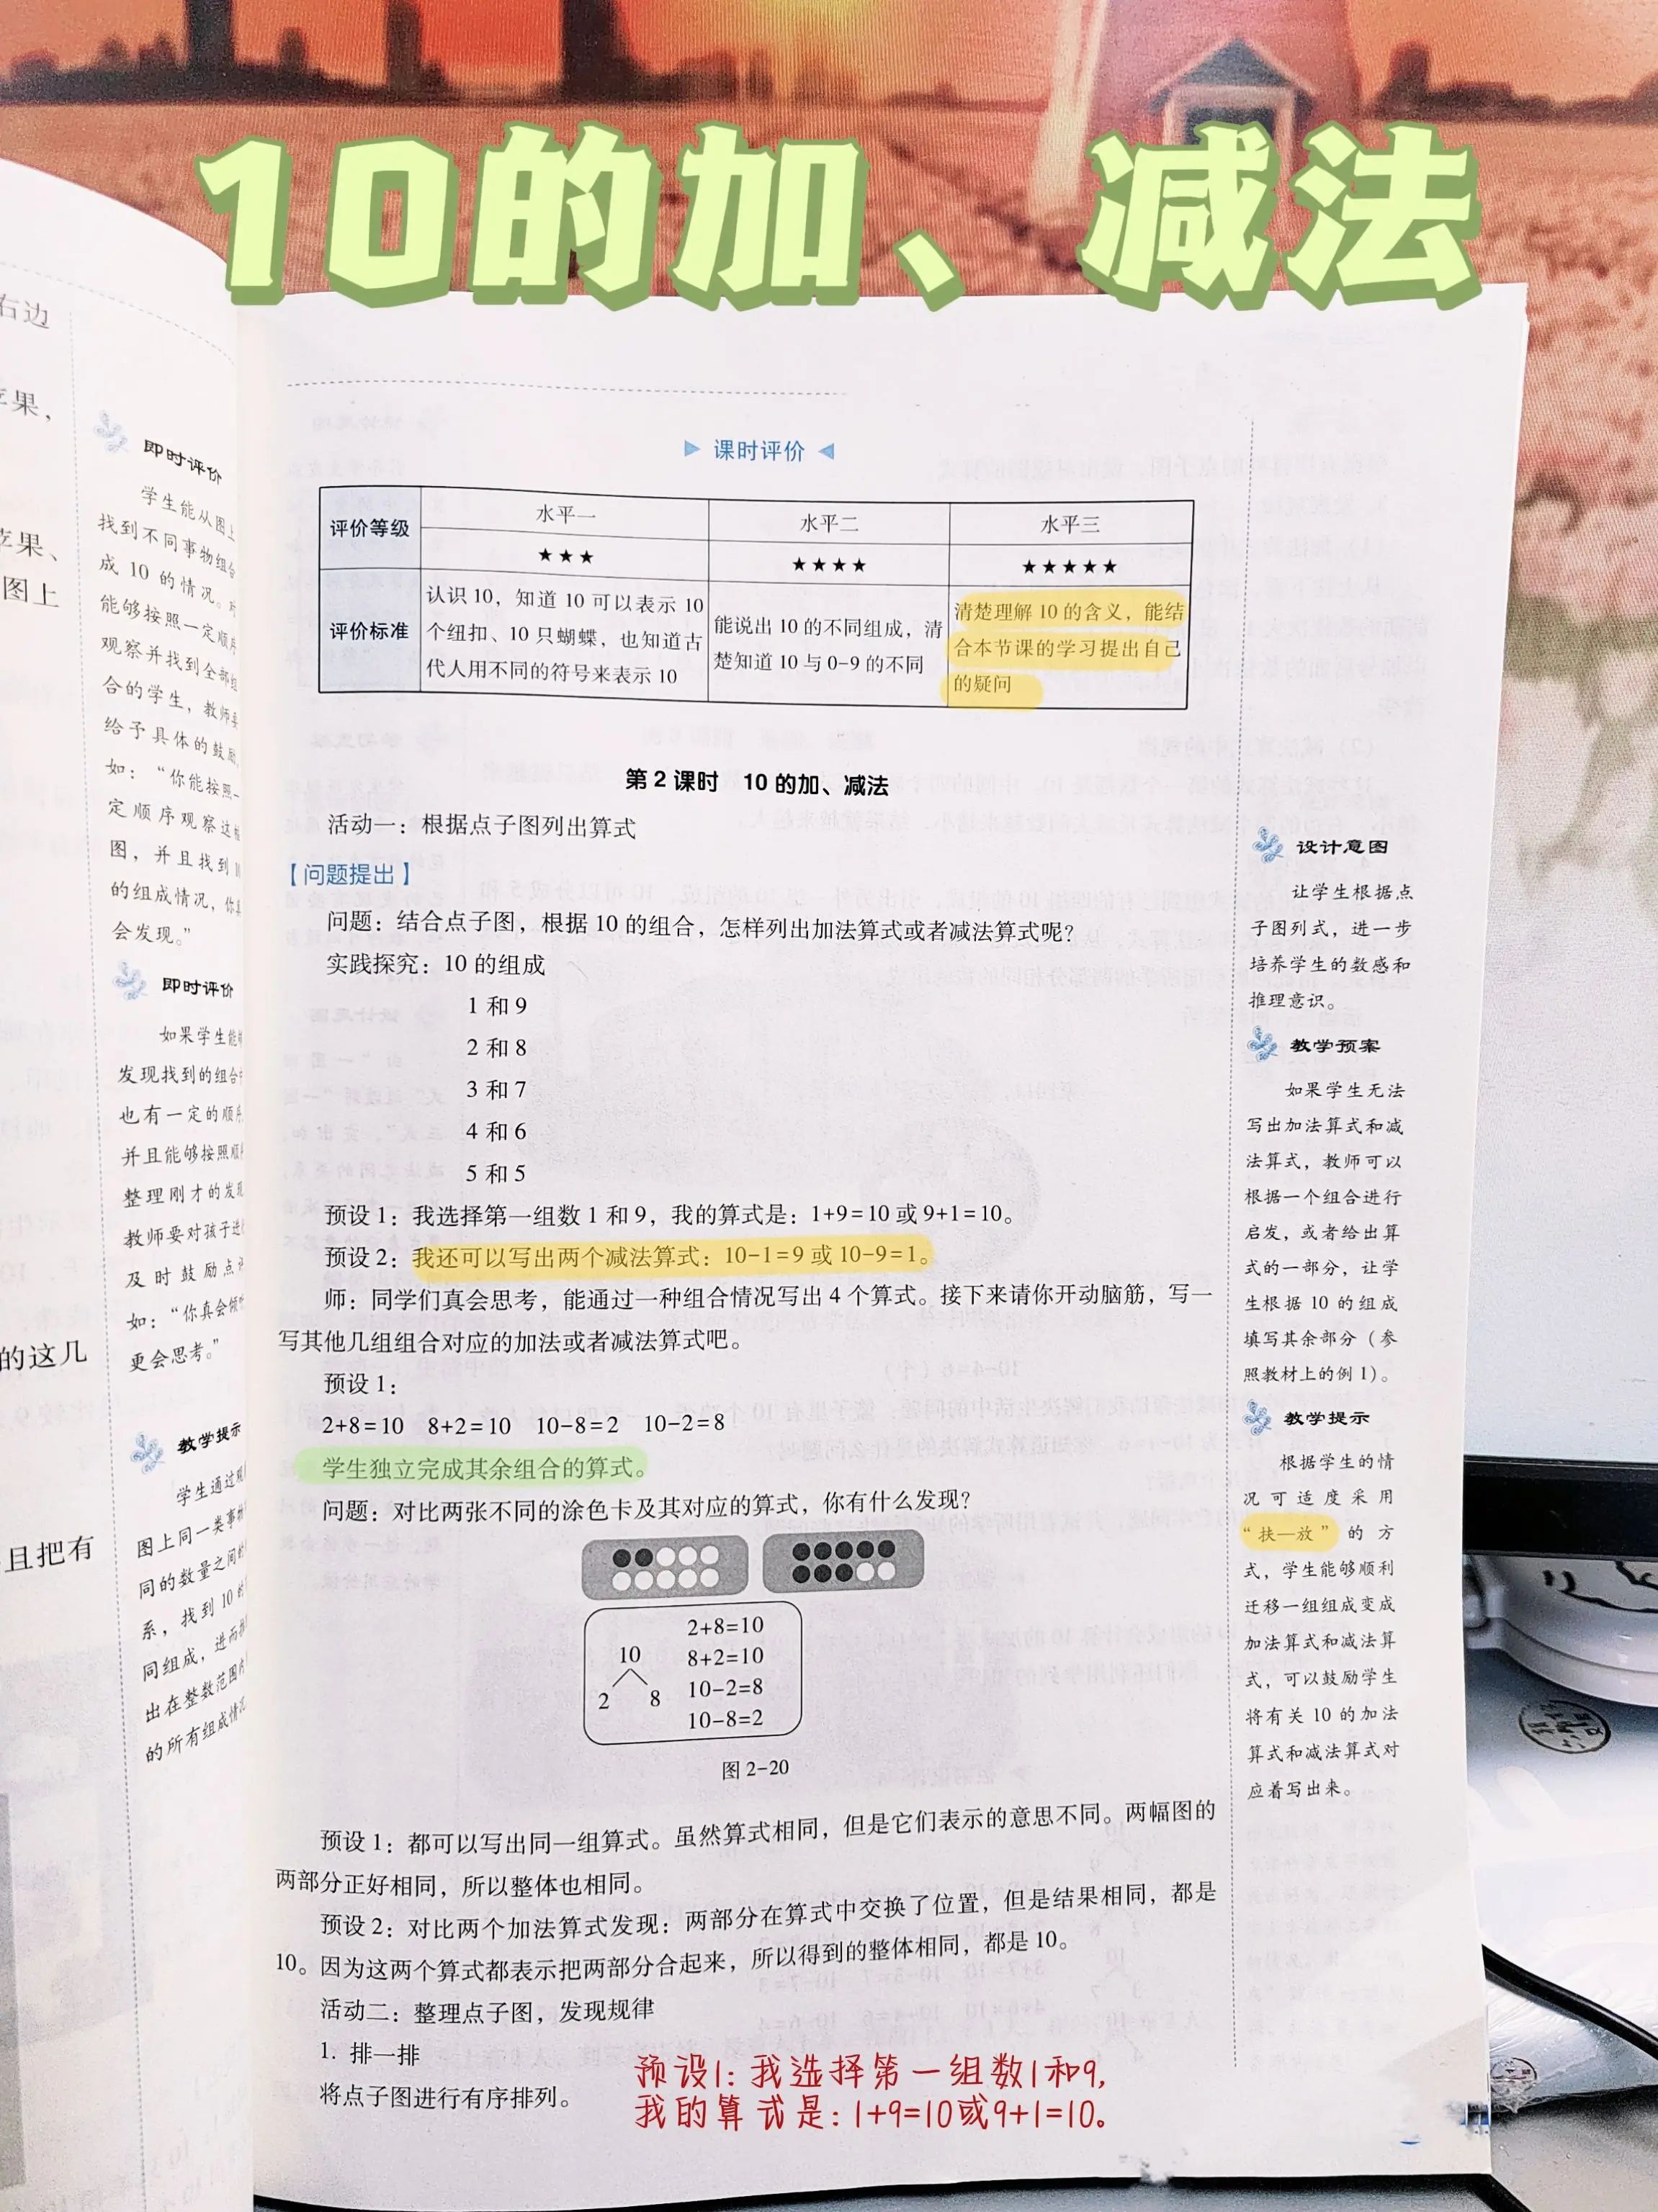 10的加、减法
右边
苹果，
苹果、
图上
的这几
且把有
即时评价
学生能从图上
找到不同事物组合
成 10 的情况。对
能够按照一定顺序
观察并找到全部组
合的学生，教师要
给予具体的鼓励，
如：“你能按照一
定顺序观察这幅
图，并且找到 10
的组成情况，你真
会发现。”
即时评价
如果学生能够
发现找到的组合中
也有一定的顺序，
并且能够按照顺序
整理刚才的发现，
教师要对孩子进行
及时鼓励点评，
如：“你真会倾听，
更会思考。”
教学提示
学生通过观
图上同一类事物
同的数量之间的
系，找到 10 的
同组成，进而推
出在整数范围内
的所有组成情况
课时评价
评价等级 水平一 水平二 水平三
★★★ ★★★★ ★★★★★
评价标准
认识 10，知道 10 可以表示 10
个纽扣、10 只蝴蝶，也知道古
代人用不同的符号来表示 10
能说出 10 的不同组成，清
楚知道 10 与 0-9 的不同
清楚理解 10 的含义，能结
合本节课的学习提出自己
的疑问
第 2 课时 10 的加、减法
活动一：根据点子图列出算式
【问题提出】
问题：结合点子图，根据 10 的组合，怎样列出加法算式或者减法算式呢？
实践探究：10 的组成
1 和 9
2 和 8
3 和 7
4 和 6
5 和 5
预设 1：我选择第一组数 1 和 9，我的算式是：1+9=10 或 9+1=10。
预设 2：我还可以写出两个减法算式：10-1=9 或 10-9=1。
师：同学们真会思考，能通过一种组合情况写出 4 个算式。接下来请你开动脑筋，写一
写其他几组组合对应的加法或者减法算式吧。
预设 1：
2+8=10 8+2=10 10-8=2 10-2=8
学生独立完成其余组合的算式。
问题：对比两张不同的涂色卡及其对应的算式，你有什么发现？
10
2 8
2+8=10
8+2=10
10-2=8
10-8=2
图 2-20
预设 1：都可以写出同一组算式。虽然算式相同，但是它们表示的意思不同。两幅图的
两部分正好相同，所以整体也相同。
预设 2：对比两个加法算式发现：两部分在算式中交换了位置，但是结果相同，都是
10。因为这两个算式都表示把两部分合起来，所以得到的整体相同，都是 10。
活动二：整理点子图，发现规律
1. 排一排
将点子图进行有序排列。
设计意图
让学生根据点
子图列式，进一步
培养学生的数感和
推理意识。
教学预案
如果学生无法
写出加法算式和减
法算式，教师可以
根据一个组合进行
启发，或者给出算
式的一部分，让学
生根据 10 的组成
填写其余部分（参
照教材上的例 1）。
教学提示
根据学生的情
况可适度采用
“扶—放”的方
式，学生能够顺利
迁移一组组成变成
加法算式和减法算
式，可以鼓励学生
将有关 10 的加法
算式和减法算式对
应着写出来。
预设1：我选择第一组数1和9，
我的算式是：1+9=10或9+1=10。